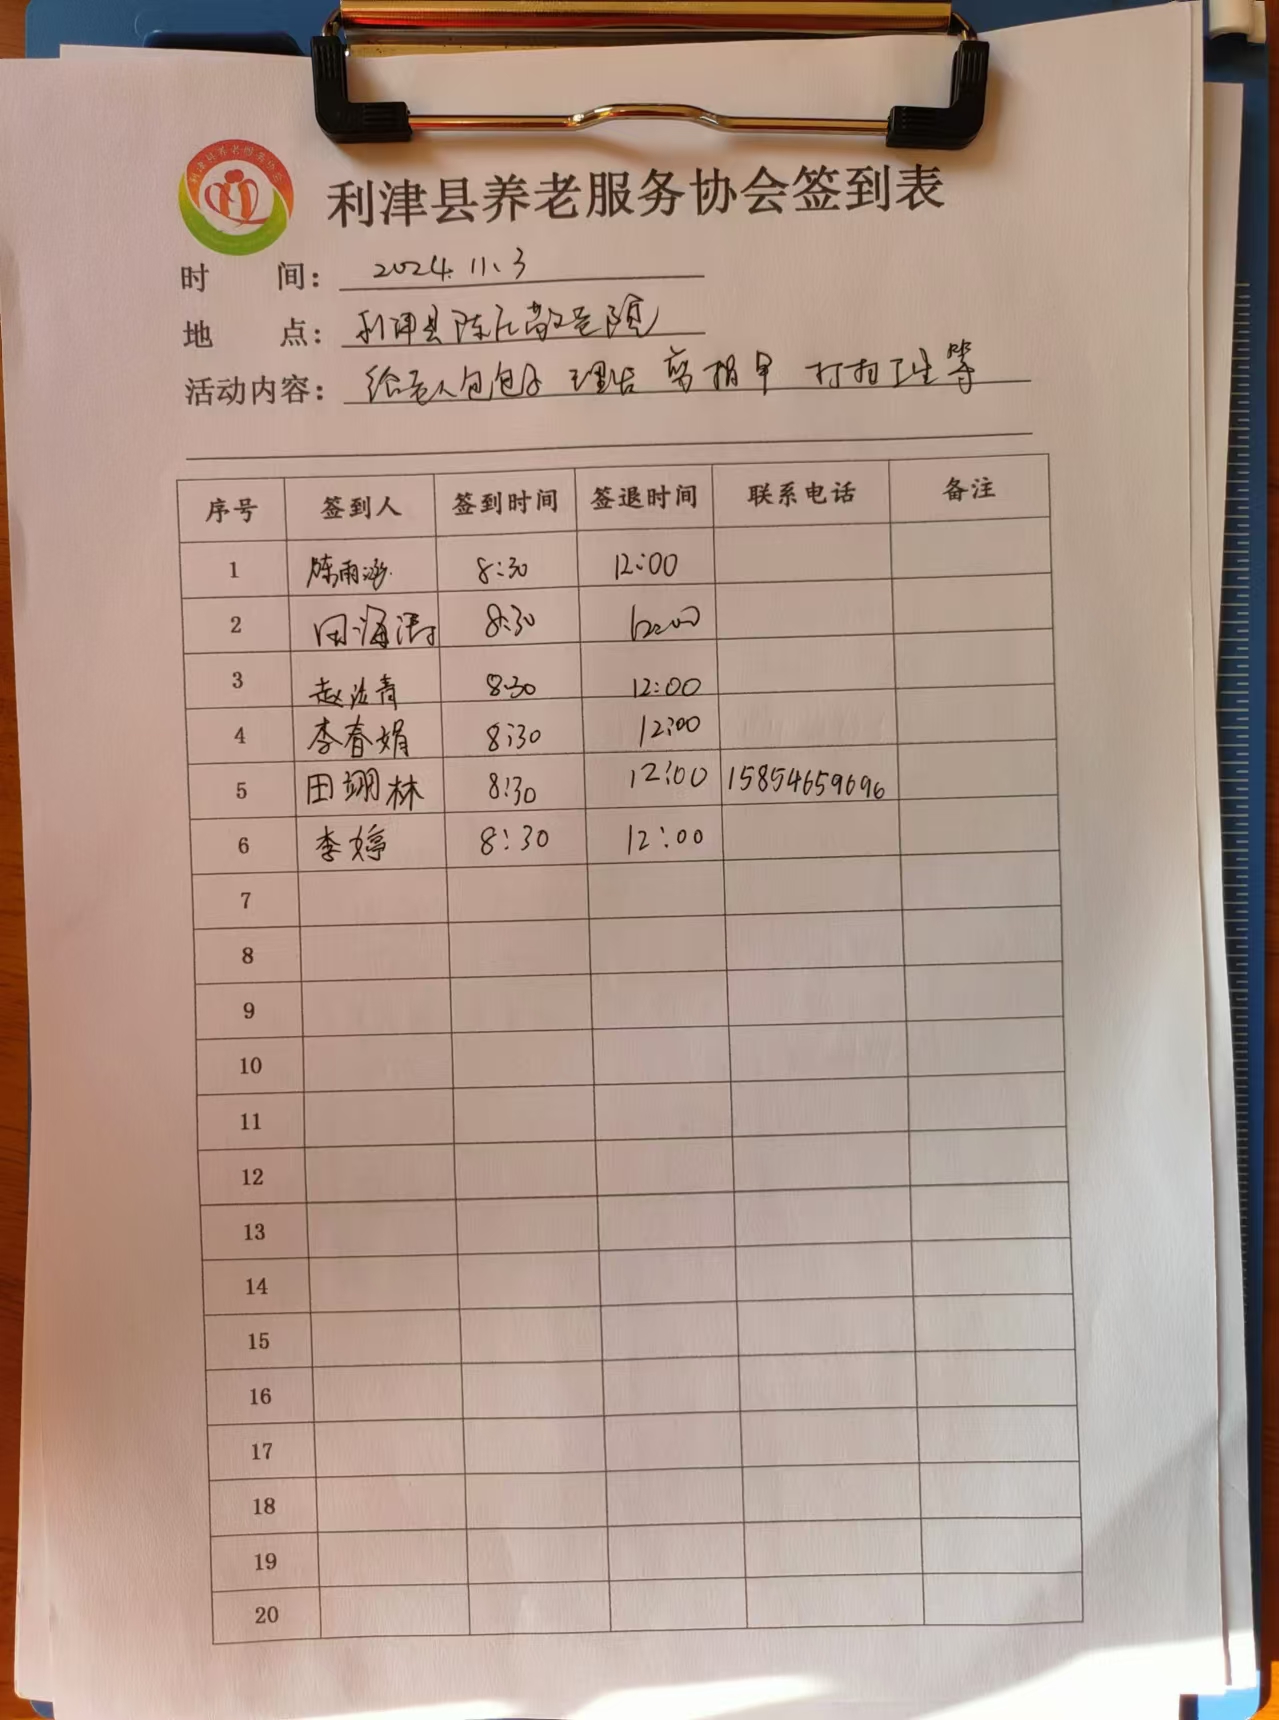 利津县养老服务协会
利津县养老服务协会签到表
时 间： 2024.11.3
地 点： 利津县陈庄敬老院
活动内容： 给老人包包子 理发 剪指甲 打扫卫生等
序号 签到人 签到时间 签退时间 联系电话 备注
1 陈雨涵 8:30 12:00
2 田海涛 8:30 12:00
3 赵洪青 8:30 12:00
4 李春娟 8:30 12:00
5 田翊林 8:30 12:00 15854659696
6 李婷 8:30 12:00
7
8
9
10
11
12
13
14
15
16
17
18
19
20